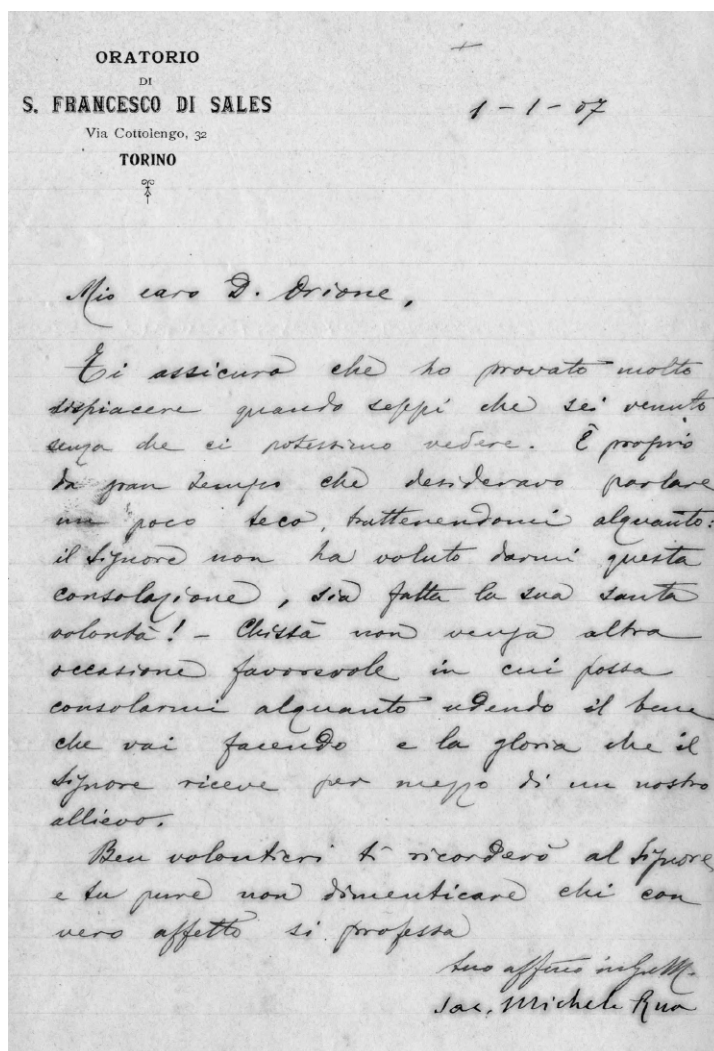 ORATORIO
DI
S. FRANCESCO DI SALES
Via Cottolengo, 32
TORINO
1-1-07
Mio caro D. Orione,
Ti assicuro che ho provato molto
dispiacere quando seppi che sei venuto
senza che ci potessimo vedere. È proprio
da gran tempo che desideravo parlare
un poco teco, trattenendomi alquanto:
il Signore non ha voluto darmi questa
consolazione, sia fatta la sua santa
volontà! - Chissà non venga altra
occasione favorevole in cui possa
consolarmi alquanto udendo il bene
che vai facendo e la gloria che il
Signore riceve per mezzo di un nostro
allievo.
Ben volontieri ti ricorderò al Signore
e tu pure non dimenticare chi con
vero affetto si professa
tuo affmo in G. e M.
Sac. Michele Rua